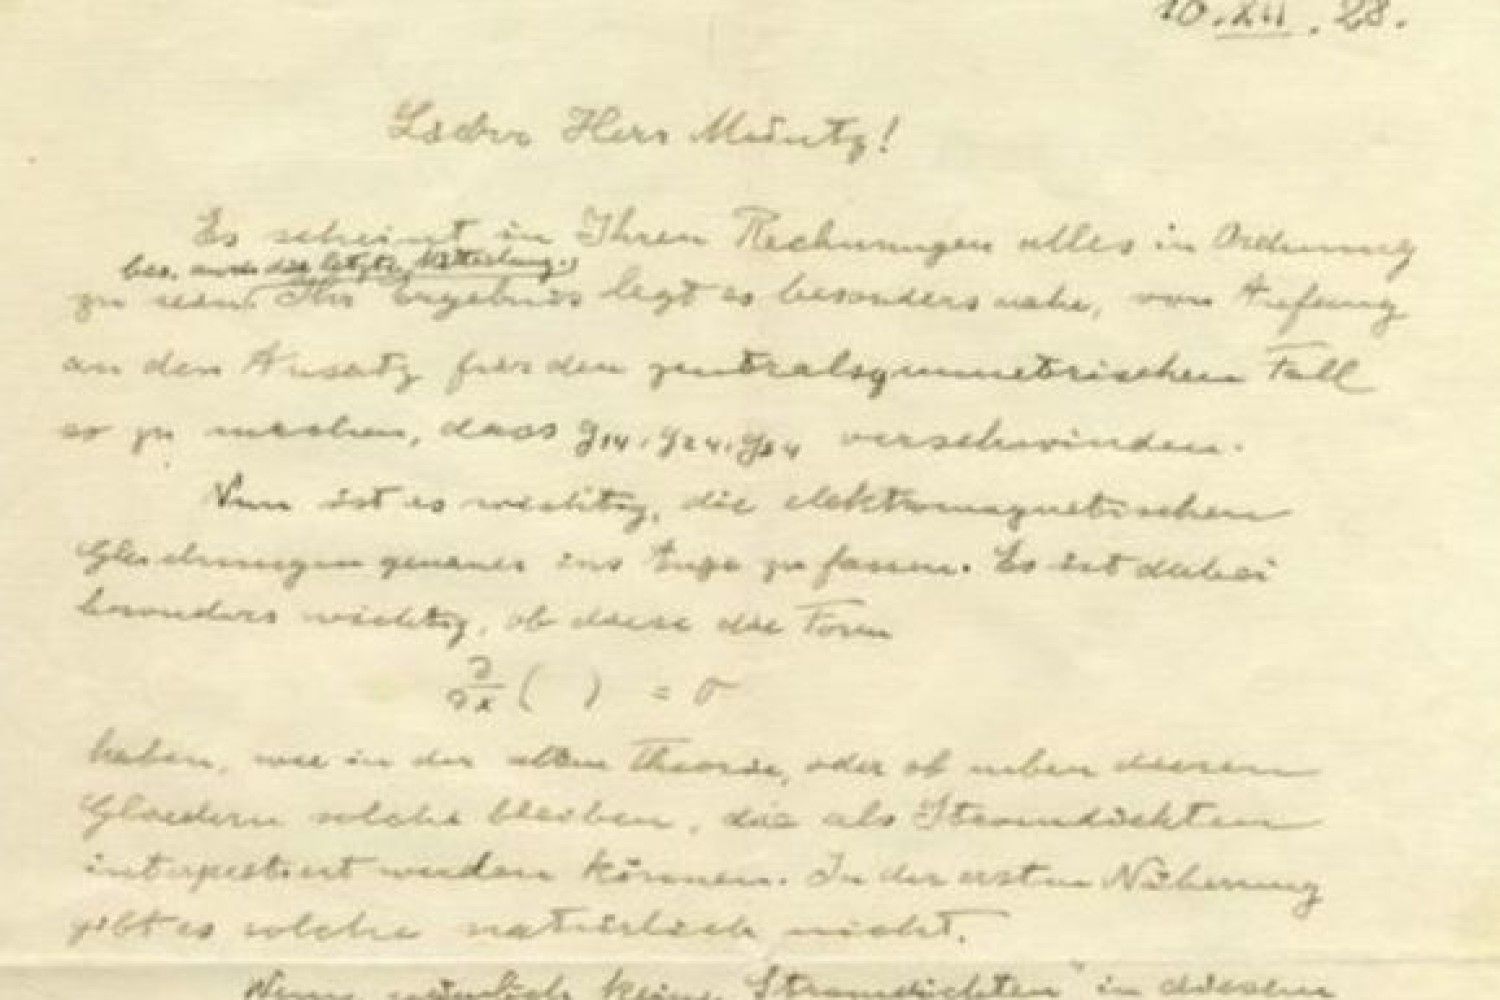 10.XII.28.
Lieber Herr Müntz!
Es scheint in Ihren Rechnungen alles in Ordnung
bes. auch die letzte Mitteilung.
zu sein. Ihr Ergebnis legt es besonders nahe, von Anfang
an den Ansatz für den zentralsymmetrischen Fall
so zu machen, dass g14, g24, g34 verschwinden.
Nun ist es wichtig, die elektromagnetischen
Gleichungen genauer ins Auge zu fassen. Es ist dabei
besonders wichtig, ob diese die Form
∂/∂x ( ) = 0
haben, wie in der alten Theorie, oder ob neben diesen
Gliedern solche bleiben, die als Stromdichten
interpretiert werden können. In der ersten Näherung
gibt es solche natürlich nicht.
Wenn nämlich keine „Stromdichten" in diesem